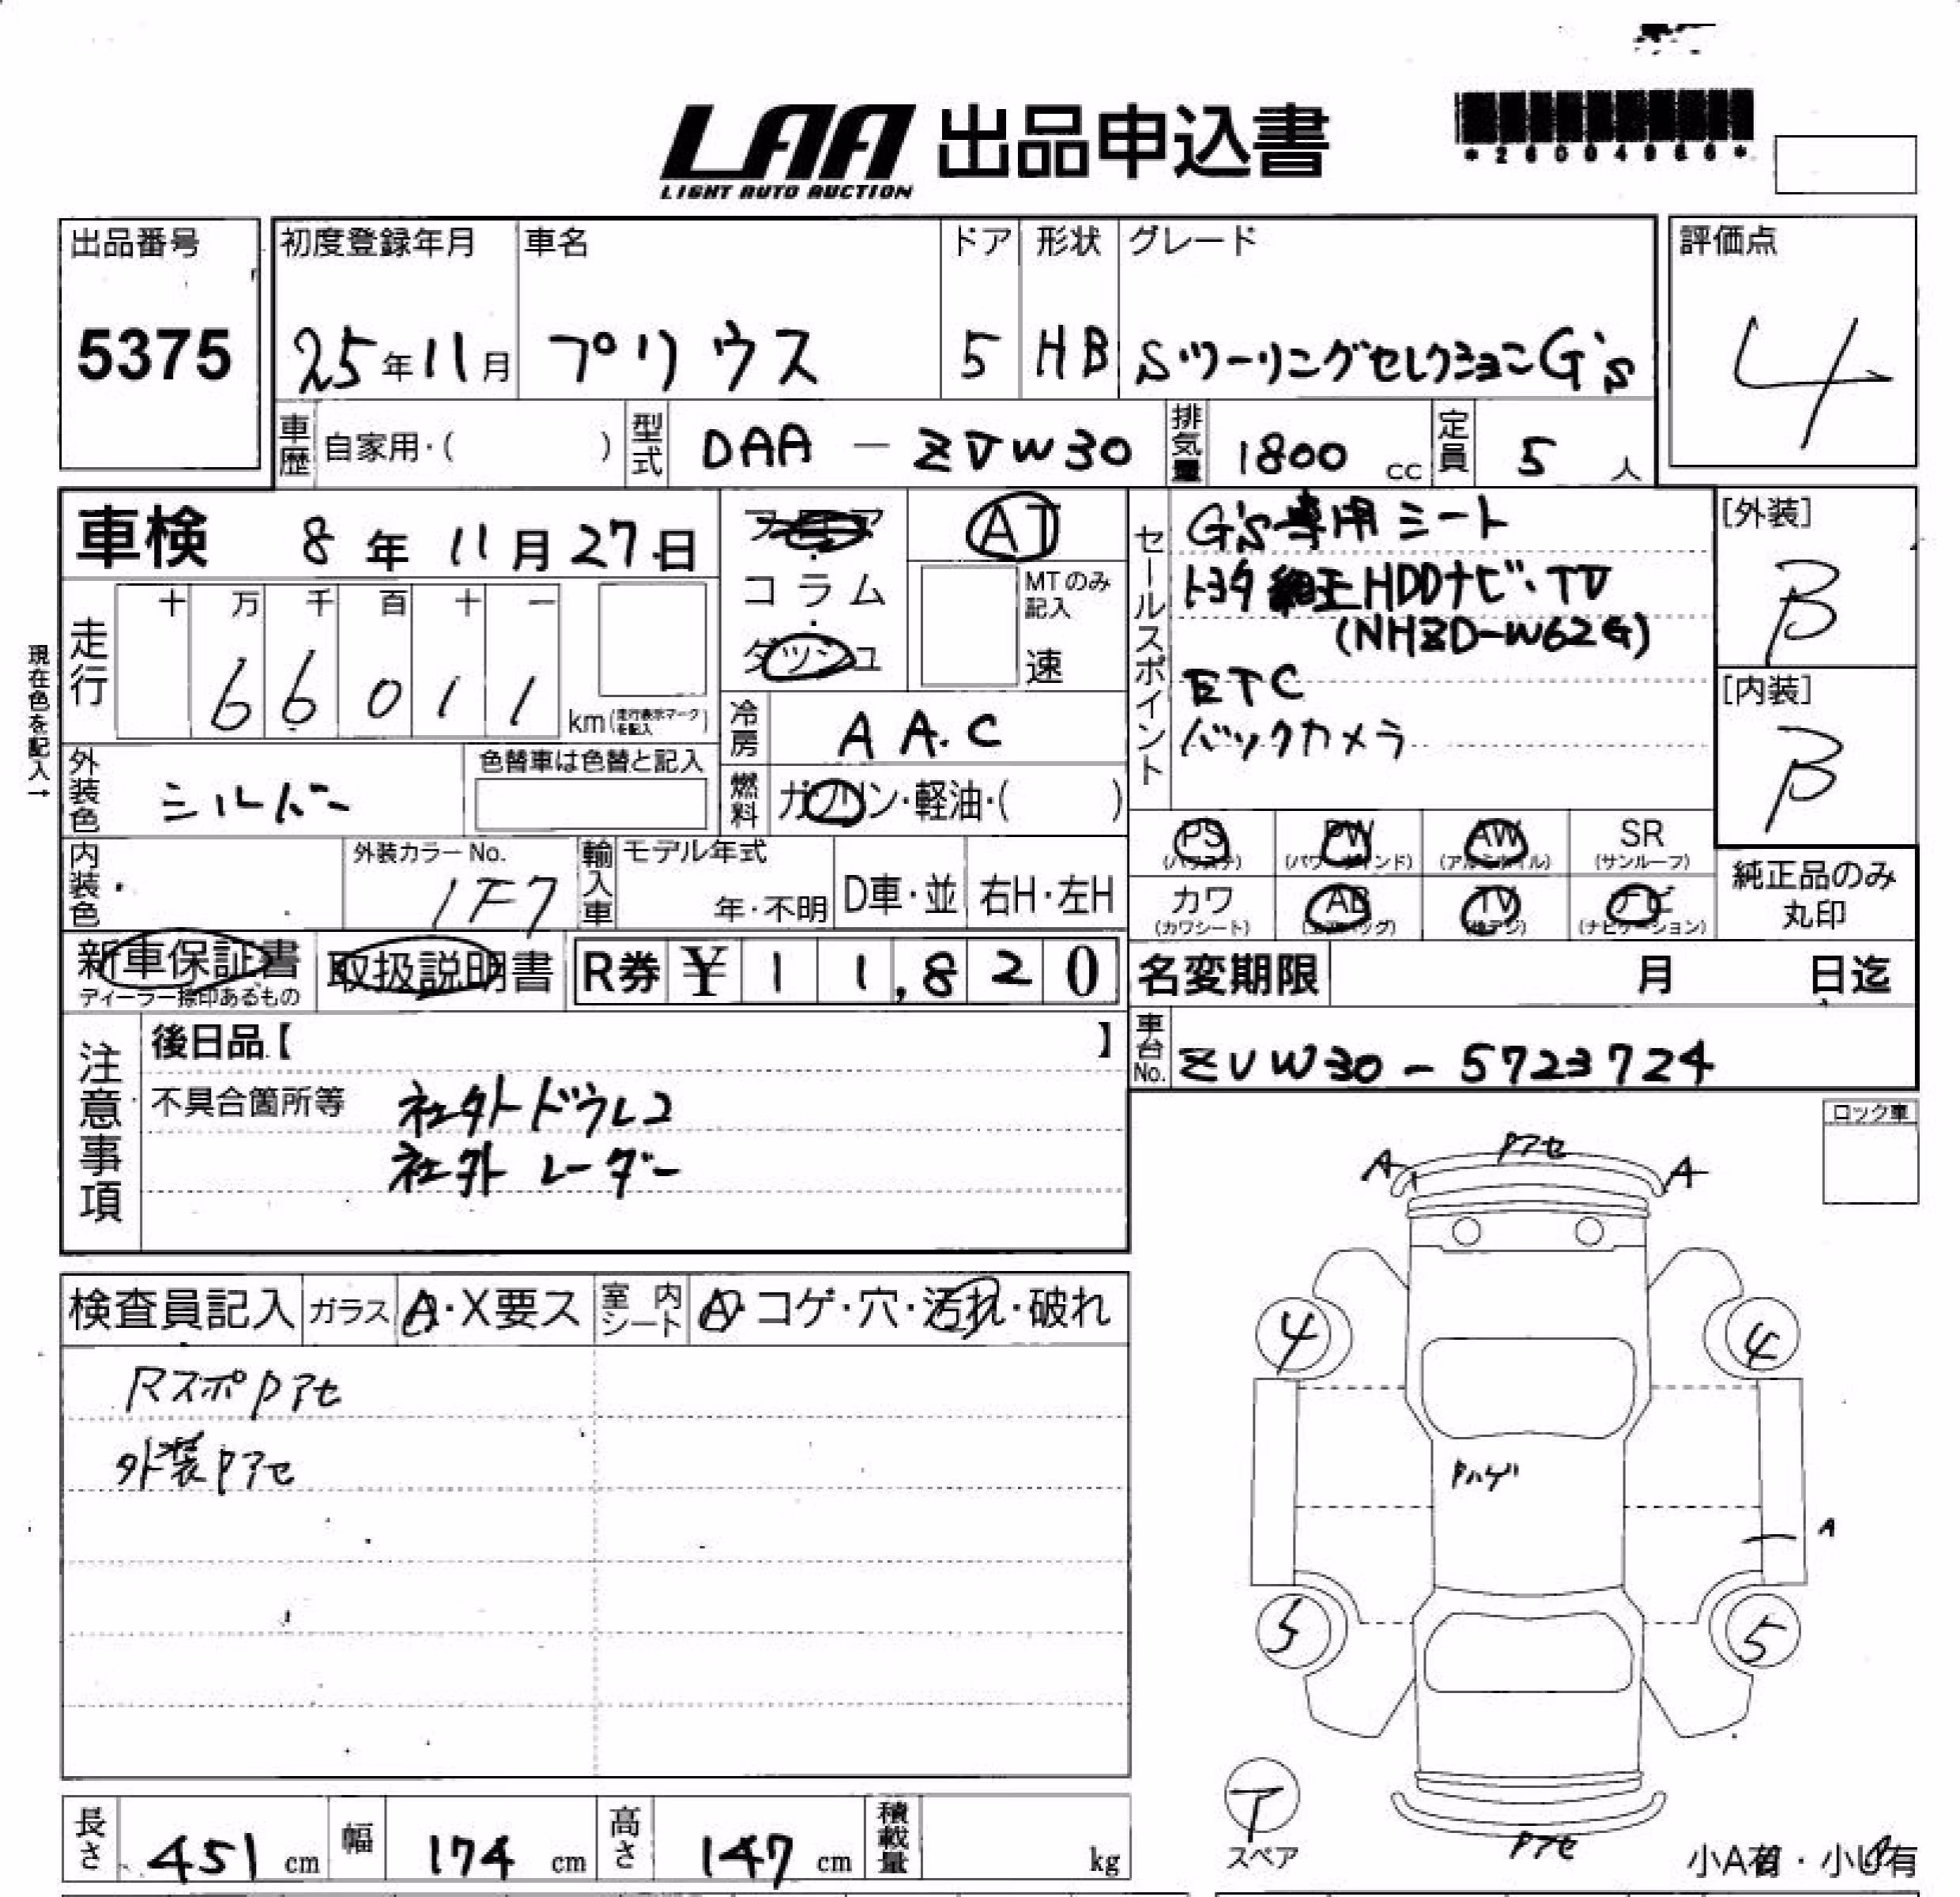 LAA 出品申込書
LIGHT AUTO AUCTION
*26004966*
出品番号 初度登録年月 車名 ドア 形状 グレード 評価点
5375 25年11月 プリウス 5 HB SツーリングセレクションG's 4
車歴 自家用・( ) 型式 DAA - ZVW30 排気量 1800 cc 定員 5 人
車検 8年11月27日
フロア・コラム・ダッシュ
AT
MTのみ記入
速
セールスポイント
G's専用シート
トヨタ純正HDDナビ・TV
(NHZD-W62G)
ETC
バックカメラ
[外装]
B
[内装]
B
現在色を記入→
走行 十 万 千 百 十 一
66011 km(走行表示マークを記入)
冷房 AA.C
外装色 シルバー 色替車は色替と記入
燃料 ガソリン・軽油・( )
内装色 外装カラーNo. 1F7
輸入車 モデル年式 年・不明 D車・並 右H・左H
PS (パワステ) PW (パワーウインド) AW (アルミホイル) SR (サンルーフ)
カワ (カワシート) AB (エアバッグ) TV (地デジ) ナビ (ナビゲーション)
純正品のみ丸印
新車保証書 取扱説明書 R券 ¥11,820
ディーラー捺印あるもの
名変期限 月 日迄
車台No. ZVW30-5723724
注意事項
後日品【 】
不具合箇所等 社外ドラレコ
社外レーダー
ロック車
検査員記入 ガラス A・X要ス 室内シート A・コゲ・穴・汚れ・破れ
RスポPアセ
外装Pアセ
Pアセ
A A
4 4
Pハゲ
A
5 5
ア
スペア
Pアセ
小A有・小U有
長さ 451 cm 幅 174 cm 高さ 147 cm 積載量 kg